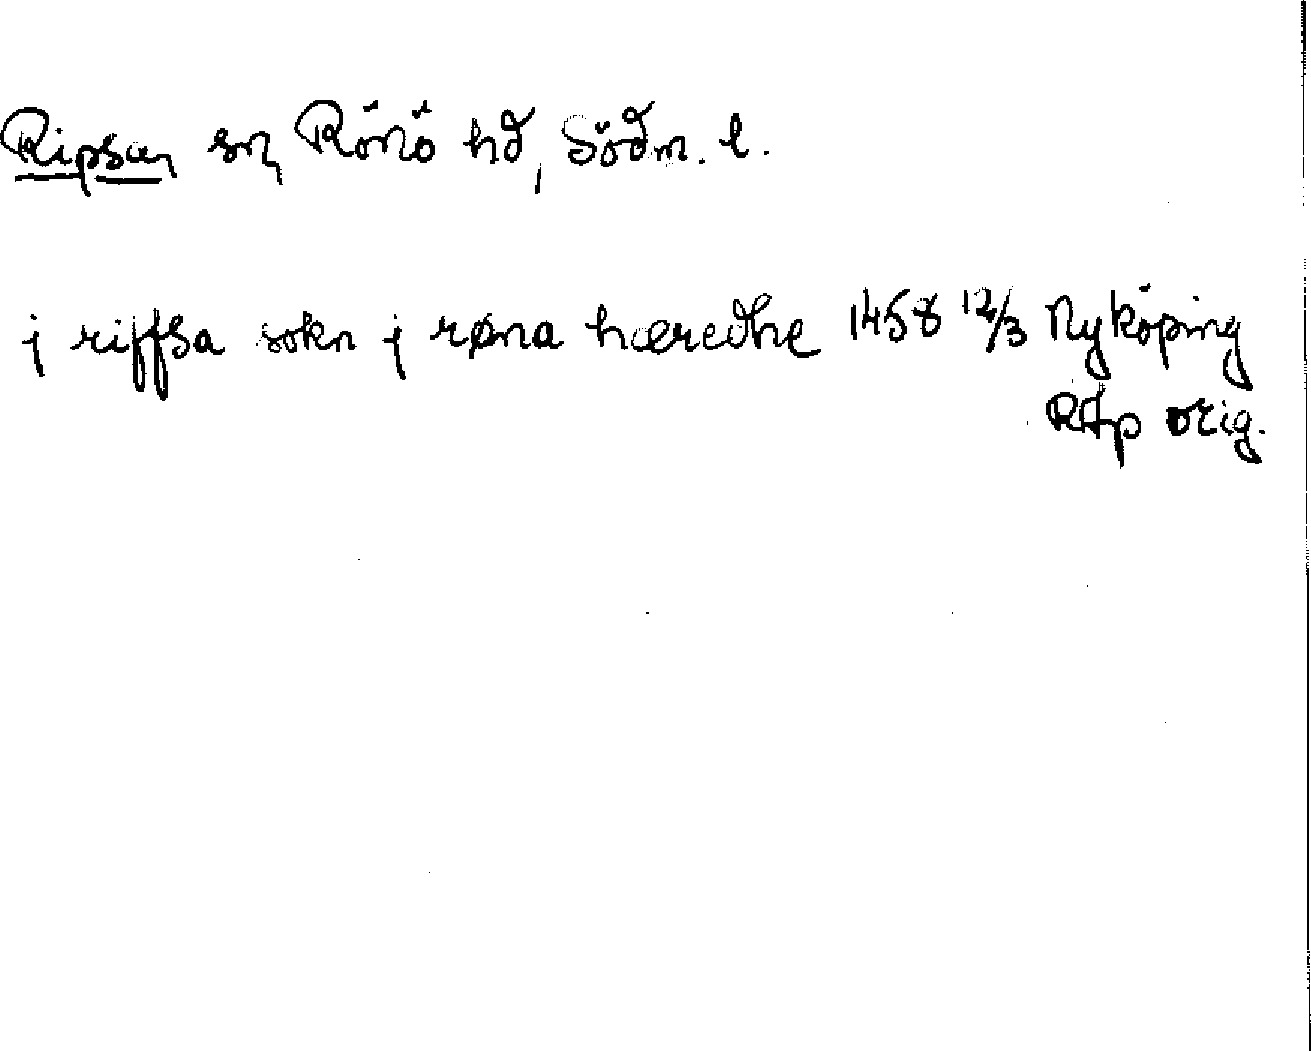 Ripsa, sn, Rönö hd, Södm. l.
j riffsa sokn j røna hæredhe 1458 12/3 Nyköping
RAp orig.